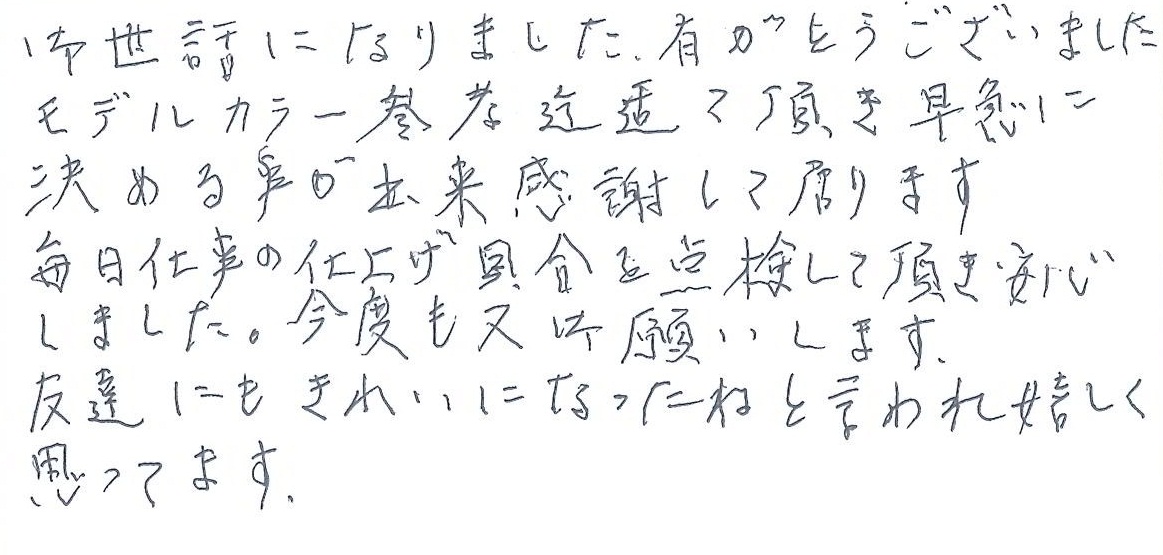 御世話になりました、有がとうございました
モデルカラー参考迄送って頂き早急に
決める事が出来感謝して居ります
毎日仕事の仕上げ具合を点検して頂き安心
しました。今度も又御願いします、
友達にもきれいになったねと言われ嬉しく
思ってます、